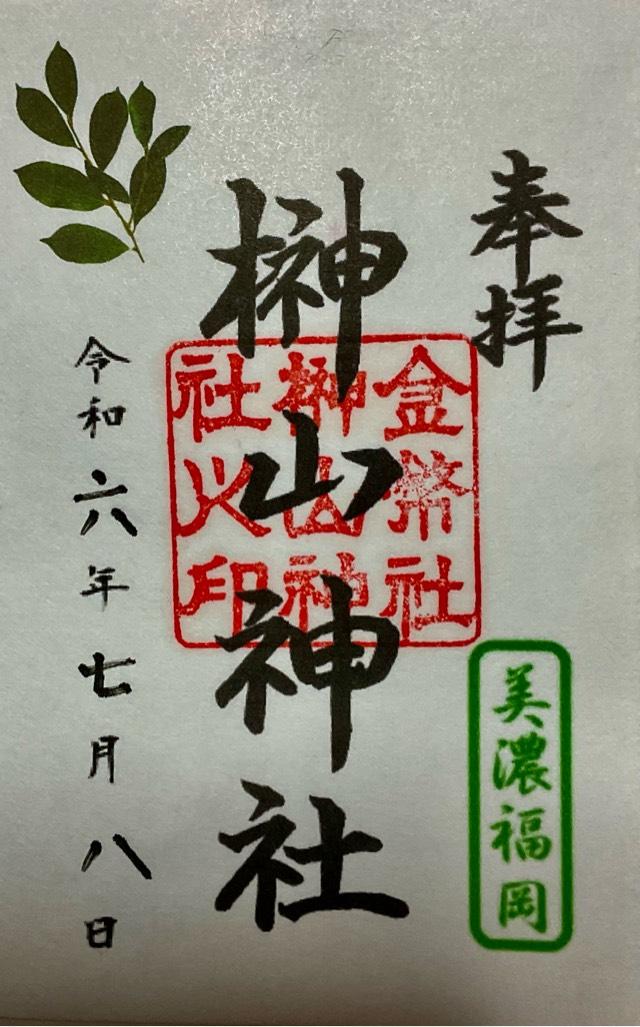 奉拝
榊山神社
金幣社
榊山神
社火印
美濃福岡
令和六年七月八日